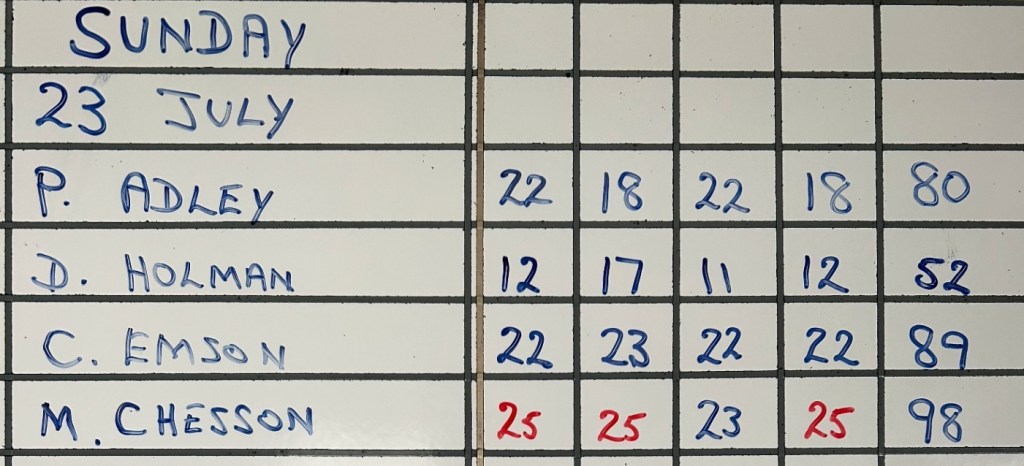 SUNDAY
23 JULY
P. ADLEY 22 18 22 18 80
D. HOLMAN 12 17 11 12 52
C. EMSON 22 23 22 22 89
M. CHESSON 25 25 23 25 98